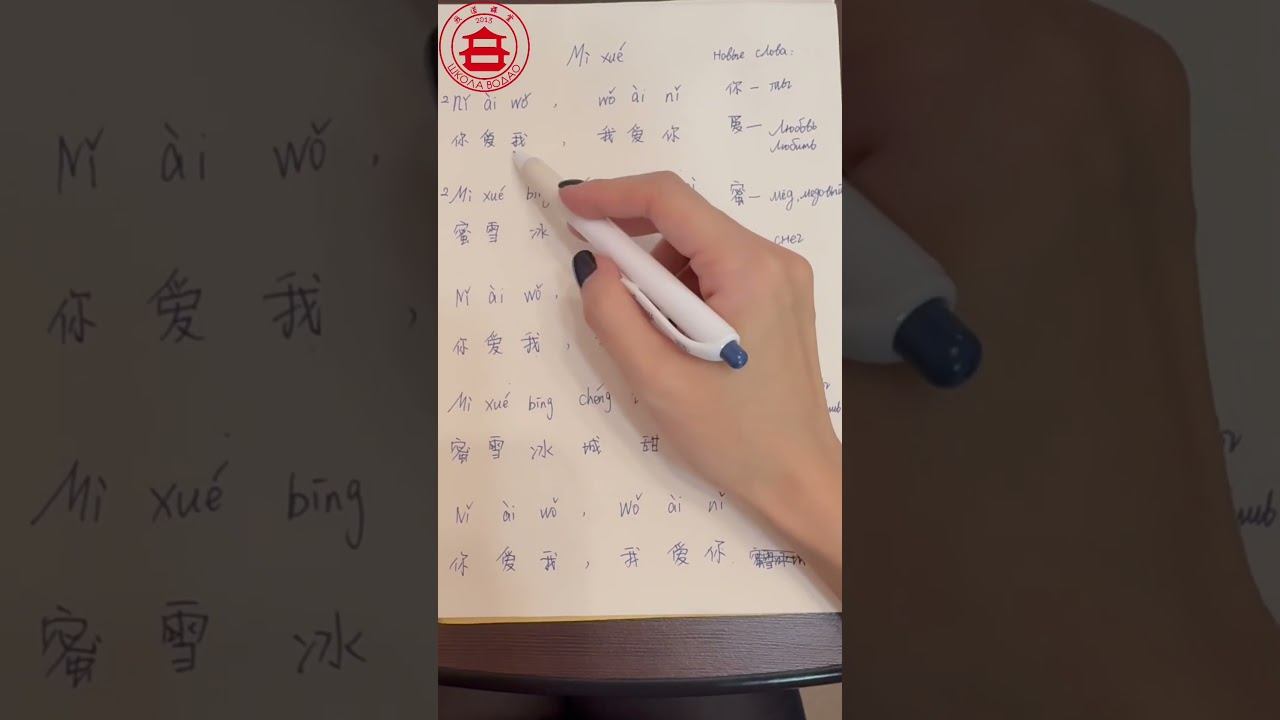 我道课堂
2013
ШКОЛА ВОДАО
Mì xué
Новые слова:
2 Nǐ ài wǒ , wǒ ài nǐ
你 爱 我 , 我 爱 你
你 — ты
爱 — любовь
любить
2 Mì xué bīng
蜜 雪 冰
蜜 — мёд, медовый
снег
Nǐ ài wǒ ,
你 爱 我 ,
Mì xué bīng chéng
蜜 雪 冰 城 甜
Nǐ ài wǒ , wǒ ài nǐ
你 爱 我 , 我 爱 你